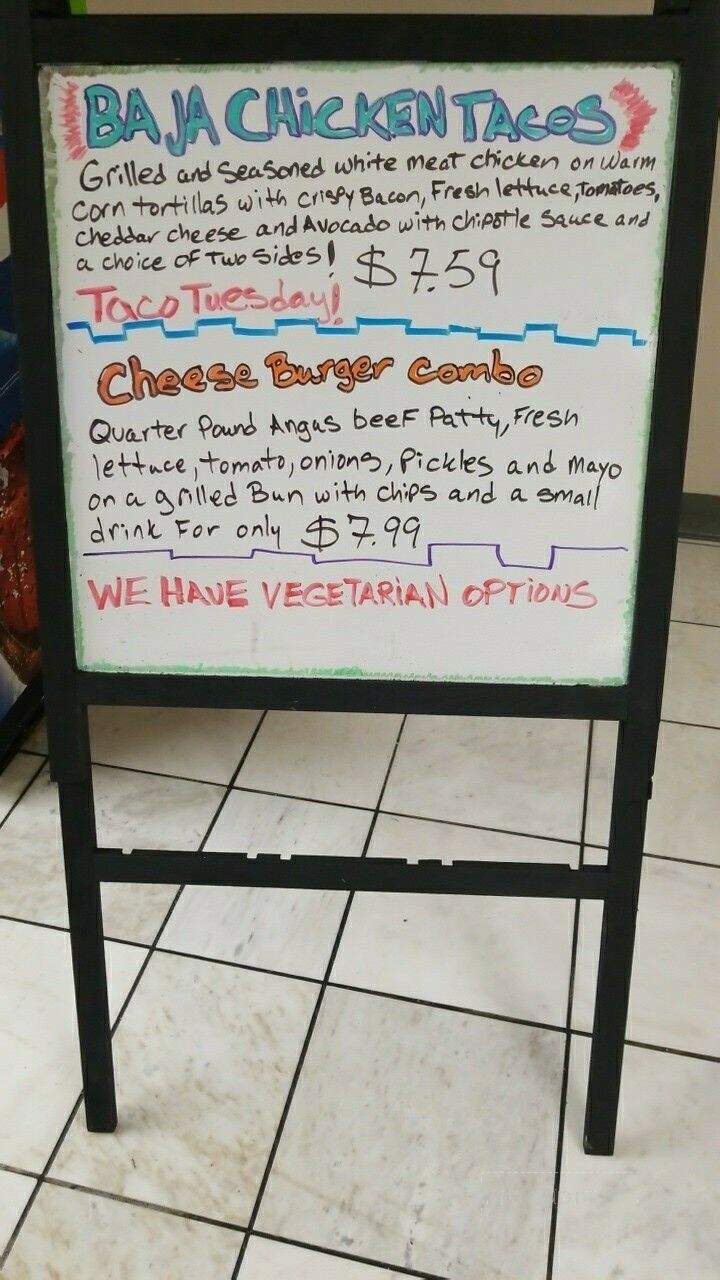 BAJA CHiCKEN TACOS
Grilled and Seasoned white meat chicken on warm
Corn tortillas with crispy Bacon, Fresh lettuce, Tomatoes,
cheddar cheese and Avocado with chipotle Sauce and
a choice of Two Sides! $7.59
Taco Tuesday!
Cheese Burger Combo
Quarter Pound Angus beef Patty, Fresh
lettuce, tomato, onions, Pickles and Mayo
on a grilled Bun with chips and a small
drink For only $7.99
WE HAVE VEGETARiAN OPTiONS